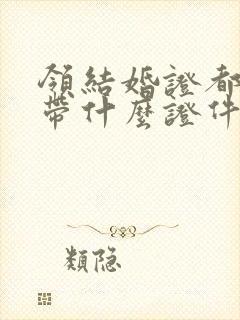 領結婚證都
帶什麼證件
類隐